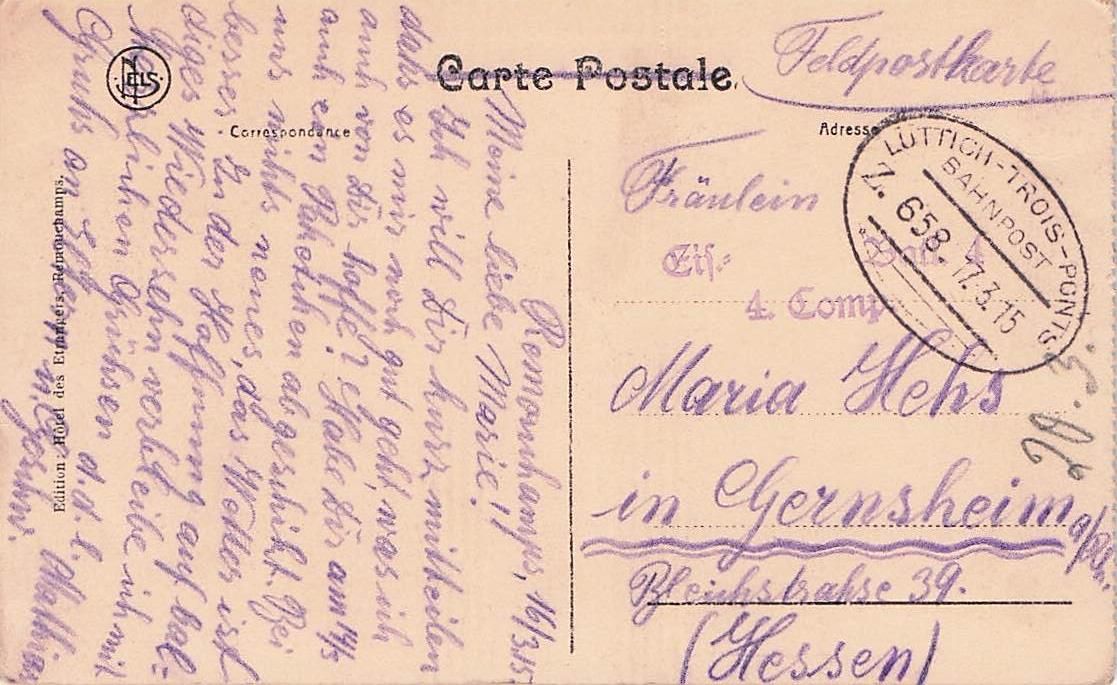 Carte Postale.
NELS
Correspondance
Adresse
Edition: Hôtel des Etrangers, Remouchamps.
Remouchamps, 16/3.15.
Meine liebe Marie!
Ich will Dir kurz mitteilen
daß es mir noch gut geht, was ich
auch von Dir hoffe? Habe Dir am 14/3
auch ein Päckchen abgeschickt. Bei
uns nichts neues, das Wetter ist
besser. In der Hoffnung auf bal-
diges Wiedersehn verbleibe ich mit
herzlichen Grüßen d.d.l.
Gruß an
Feldpostkarte
Fräulein
Eis.= Batl. 4
4. Comp
Maria Hehs
in Gernsheim a/Rh.
Bleichstrahse 39.
(Hessen)
LÜTTICH-TROIS-PONTS
BAHNPOST
Z. 658. 17.3.15